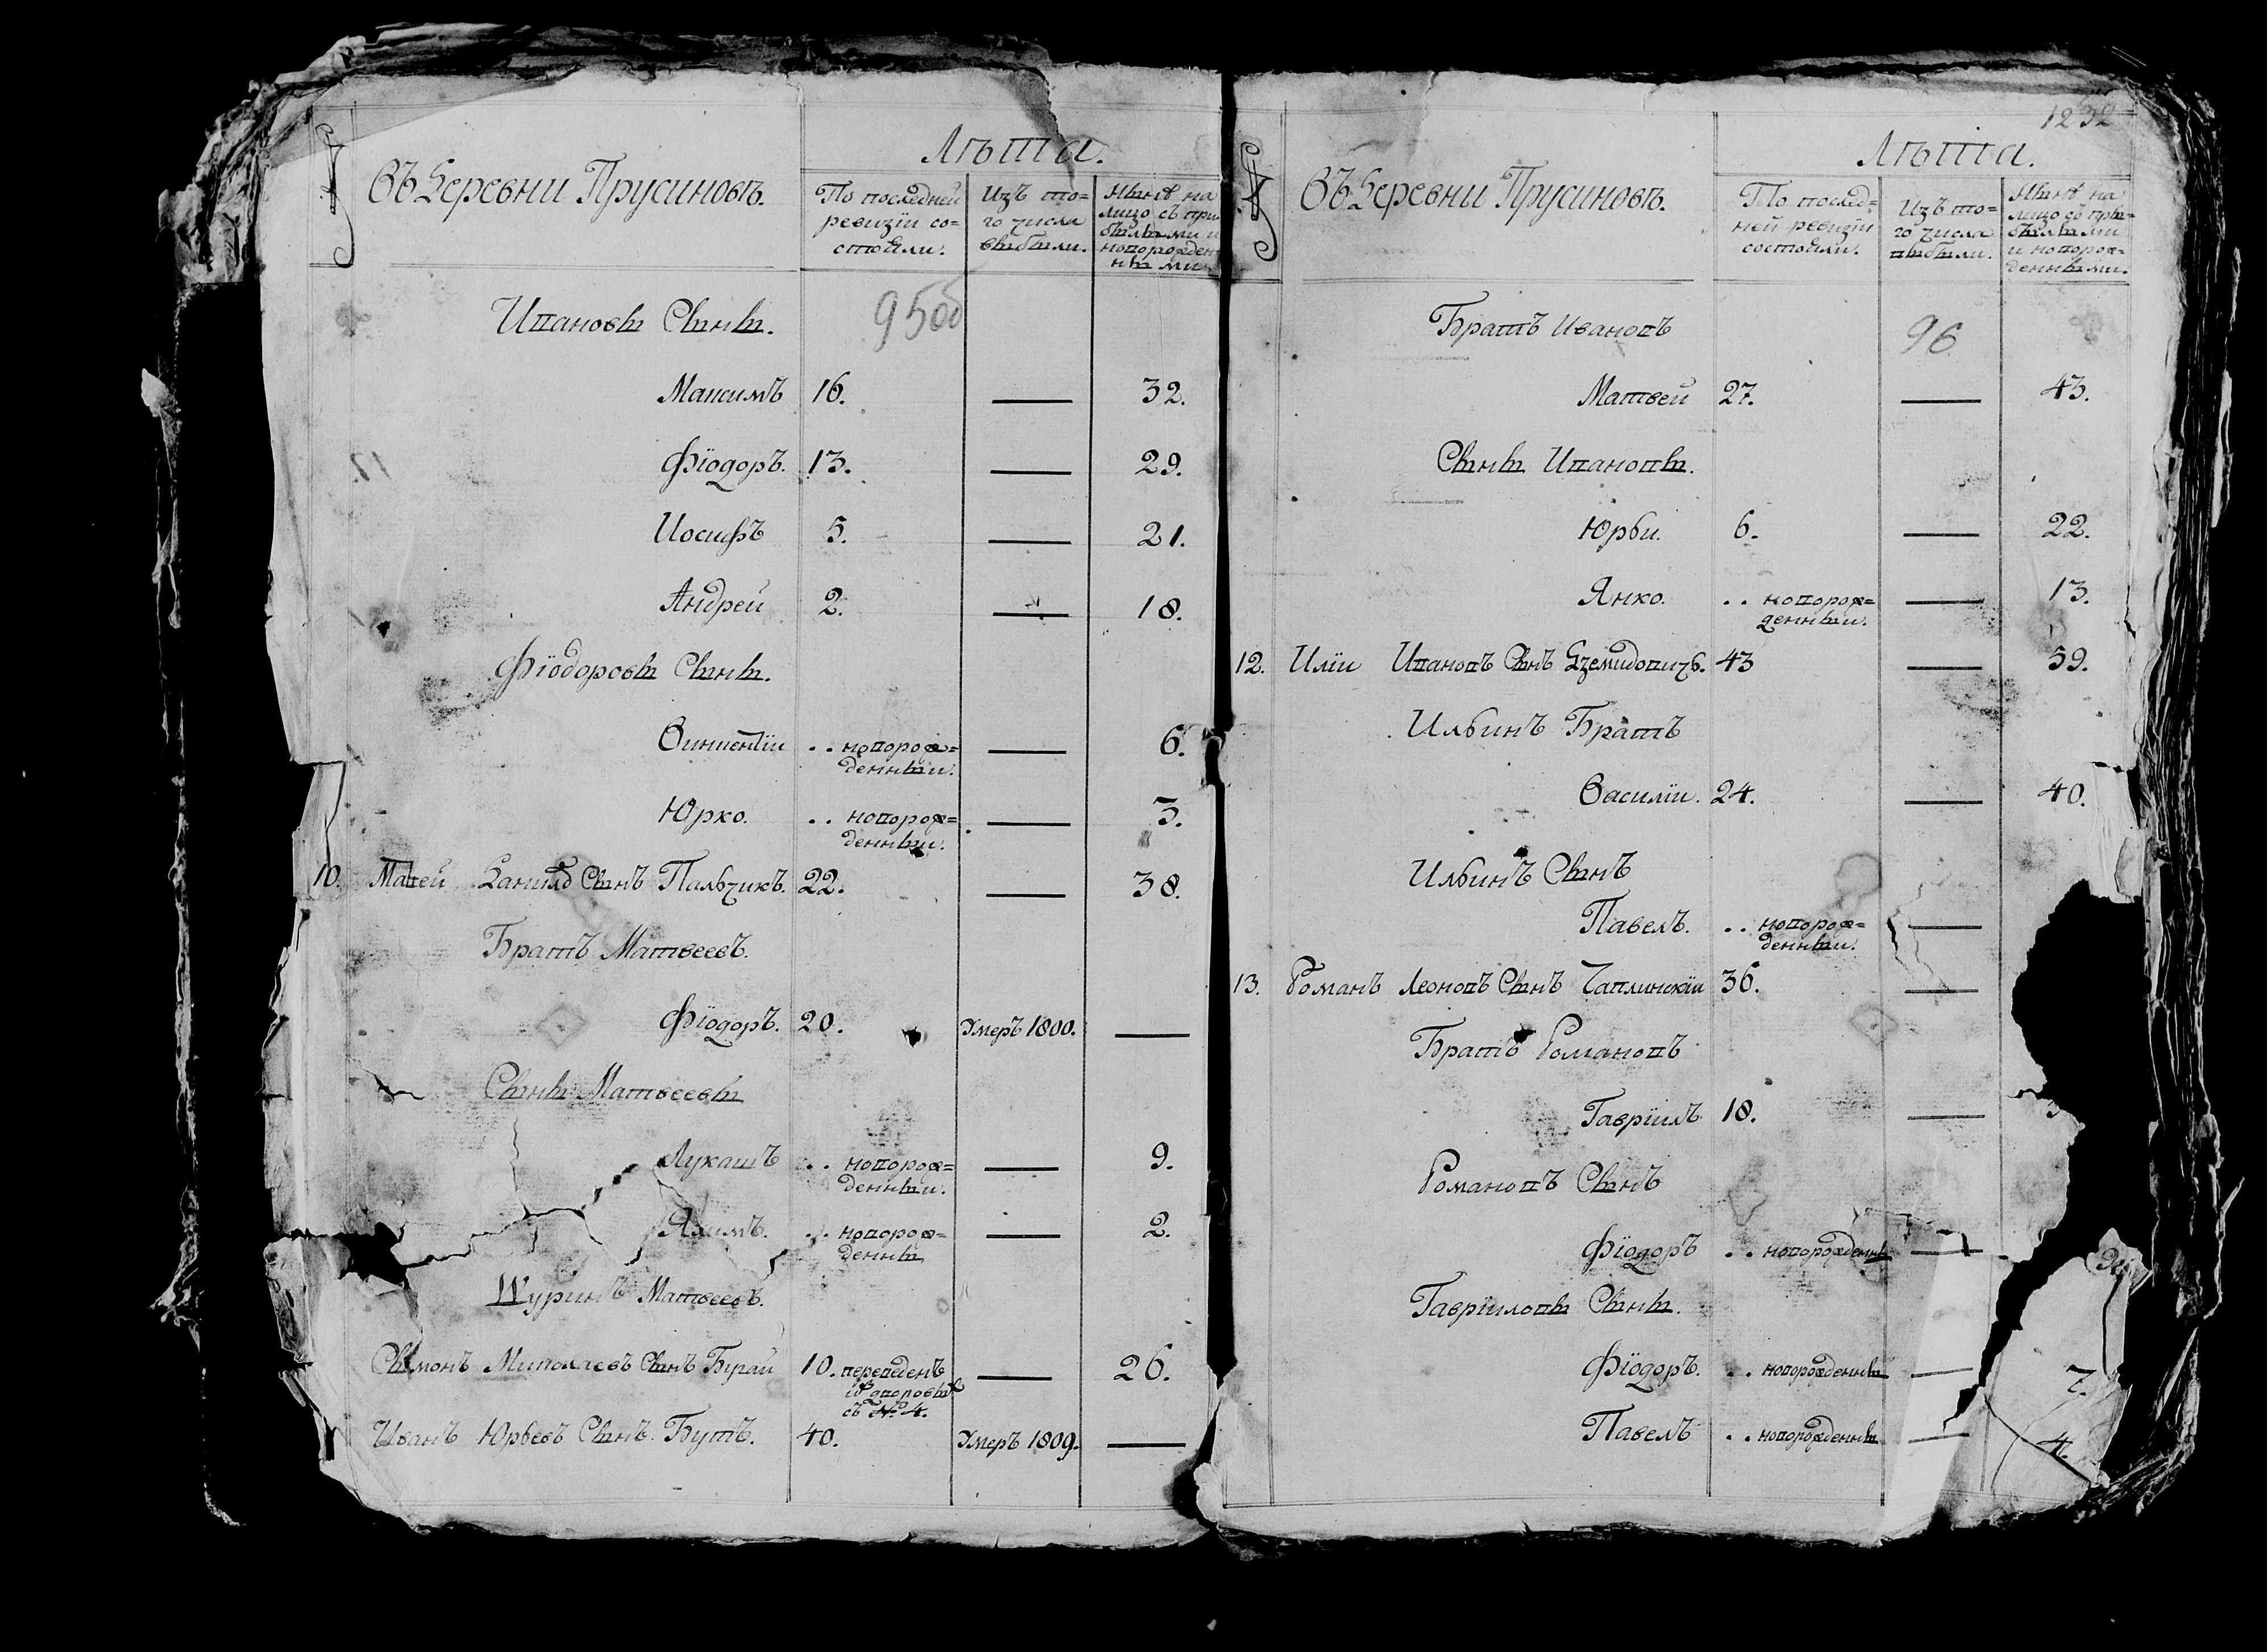 №
Въ Деревни Прусиновъ.
Лѣта.
По последней
ревизіи со=
стояли.
Изъ то=
го числа
выбыли.
Нынѣ на
лицо съ при
былыми и
новорожден
ными
950б
Ивановы Сыны.
Максимъ 16. — 32.
Фіодоръ. 13. — 29.
Иосифъ 5. — 21.
Андрей 2. — 18.
Фіодоровы Сыны.
Винцентіи .. новорож= — 6.
денныи.
Юрко. .. новорож= — 3.
денныи.
10. Матей Данилъ Сынъ Пальчикъ. 22. — 38.
Братъ Матвеевъ.
Фіодоръ. 20. Умеръ 1800. —
Сыны Матвеевы
Лукашъ .. новорож= — 9.
денныи.
Якимъ. .. новорож= — 2.
денны
Шуринъ Матвеевъ.
Сымонъ Миколаевъ Сынъ 10. переведенъ — 26.
съ № 4.
Иванъ Юрьевъ Сынъ Бутъ. 40. Умеръ 1809. —
1232
№
Въ Деревни Прусиновъ.
Лѣта.
По послед=
ней ревизіи
состояли.
Изъ то=
го числа
выбыли.
Нынѣ на
лицо съ при=
былыми
и новорож=
денными.
96
Братъ Ивановъ
Матвей 27. — 43.
Сыны Ивановы.
Юрьи. 6. — 22.
Янко. .. новорож= — 13.
денныи.
12. Иліи Ивановъ Сынъ Дземидовичъ. 43 — 59.
Ильинъ Братъ
Василіи. 24. — 40.
Ильинъ Сынъ
Павелъ. .. новорож= —
денныи.
13. Романъ Леоновъ Сынъ Чаплинскіи 36. —
Братъ Романовъ
Гавріилъ 18. —
Романовъ Сынъ
Фіодоръ .. новорожденны —
Гавріиловы Сыны.
Фіодоръ. .. новорожденны — 7.
Павелъ .. новорожденны — 4.